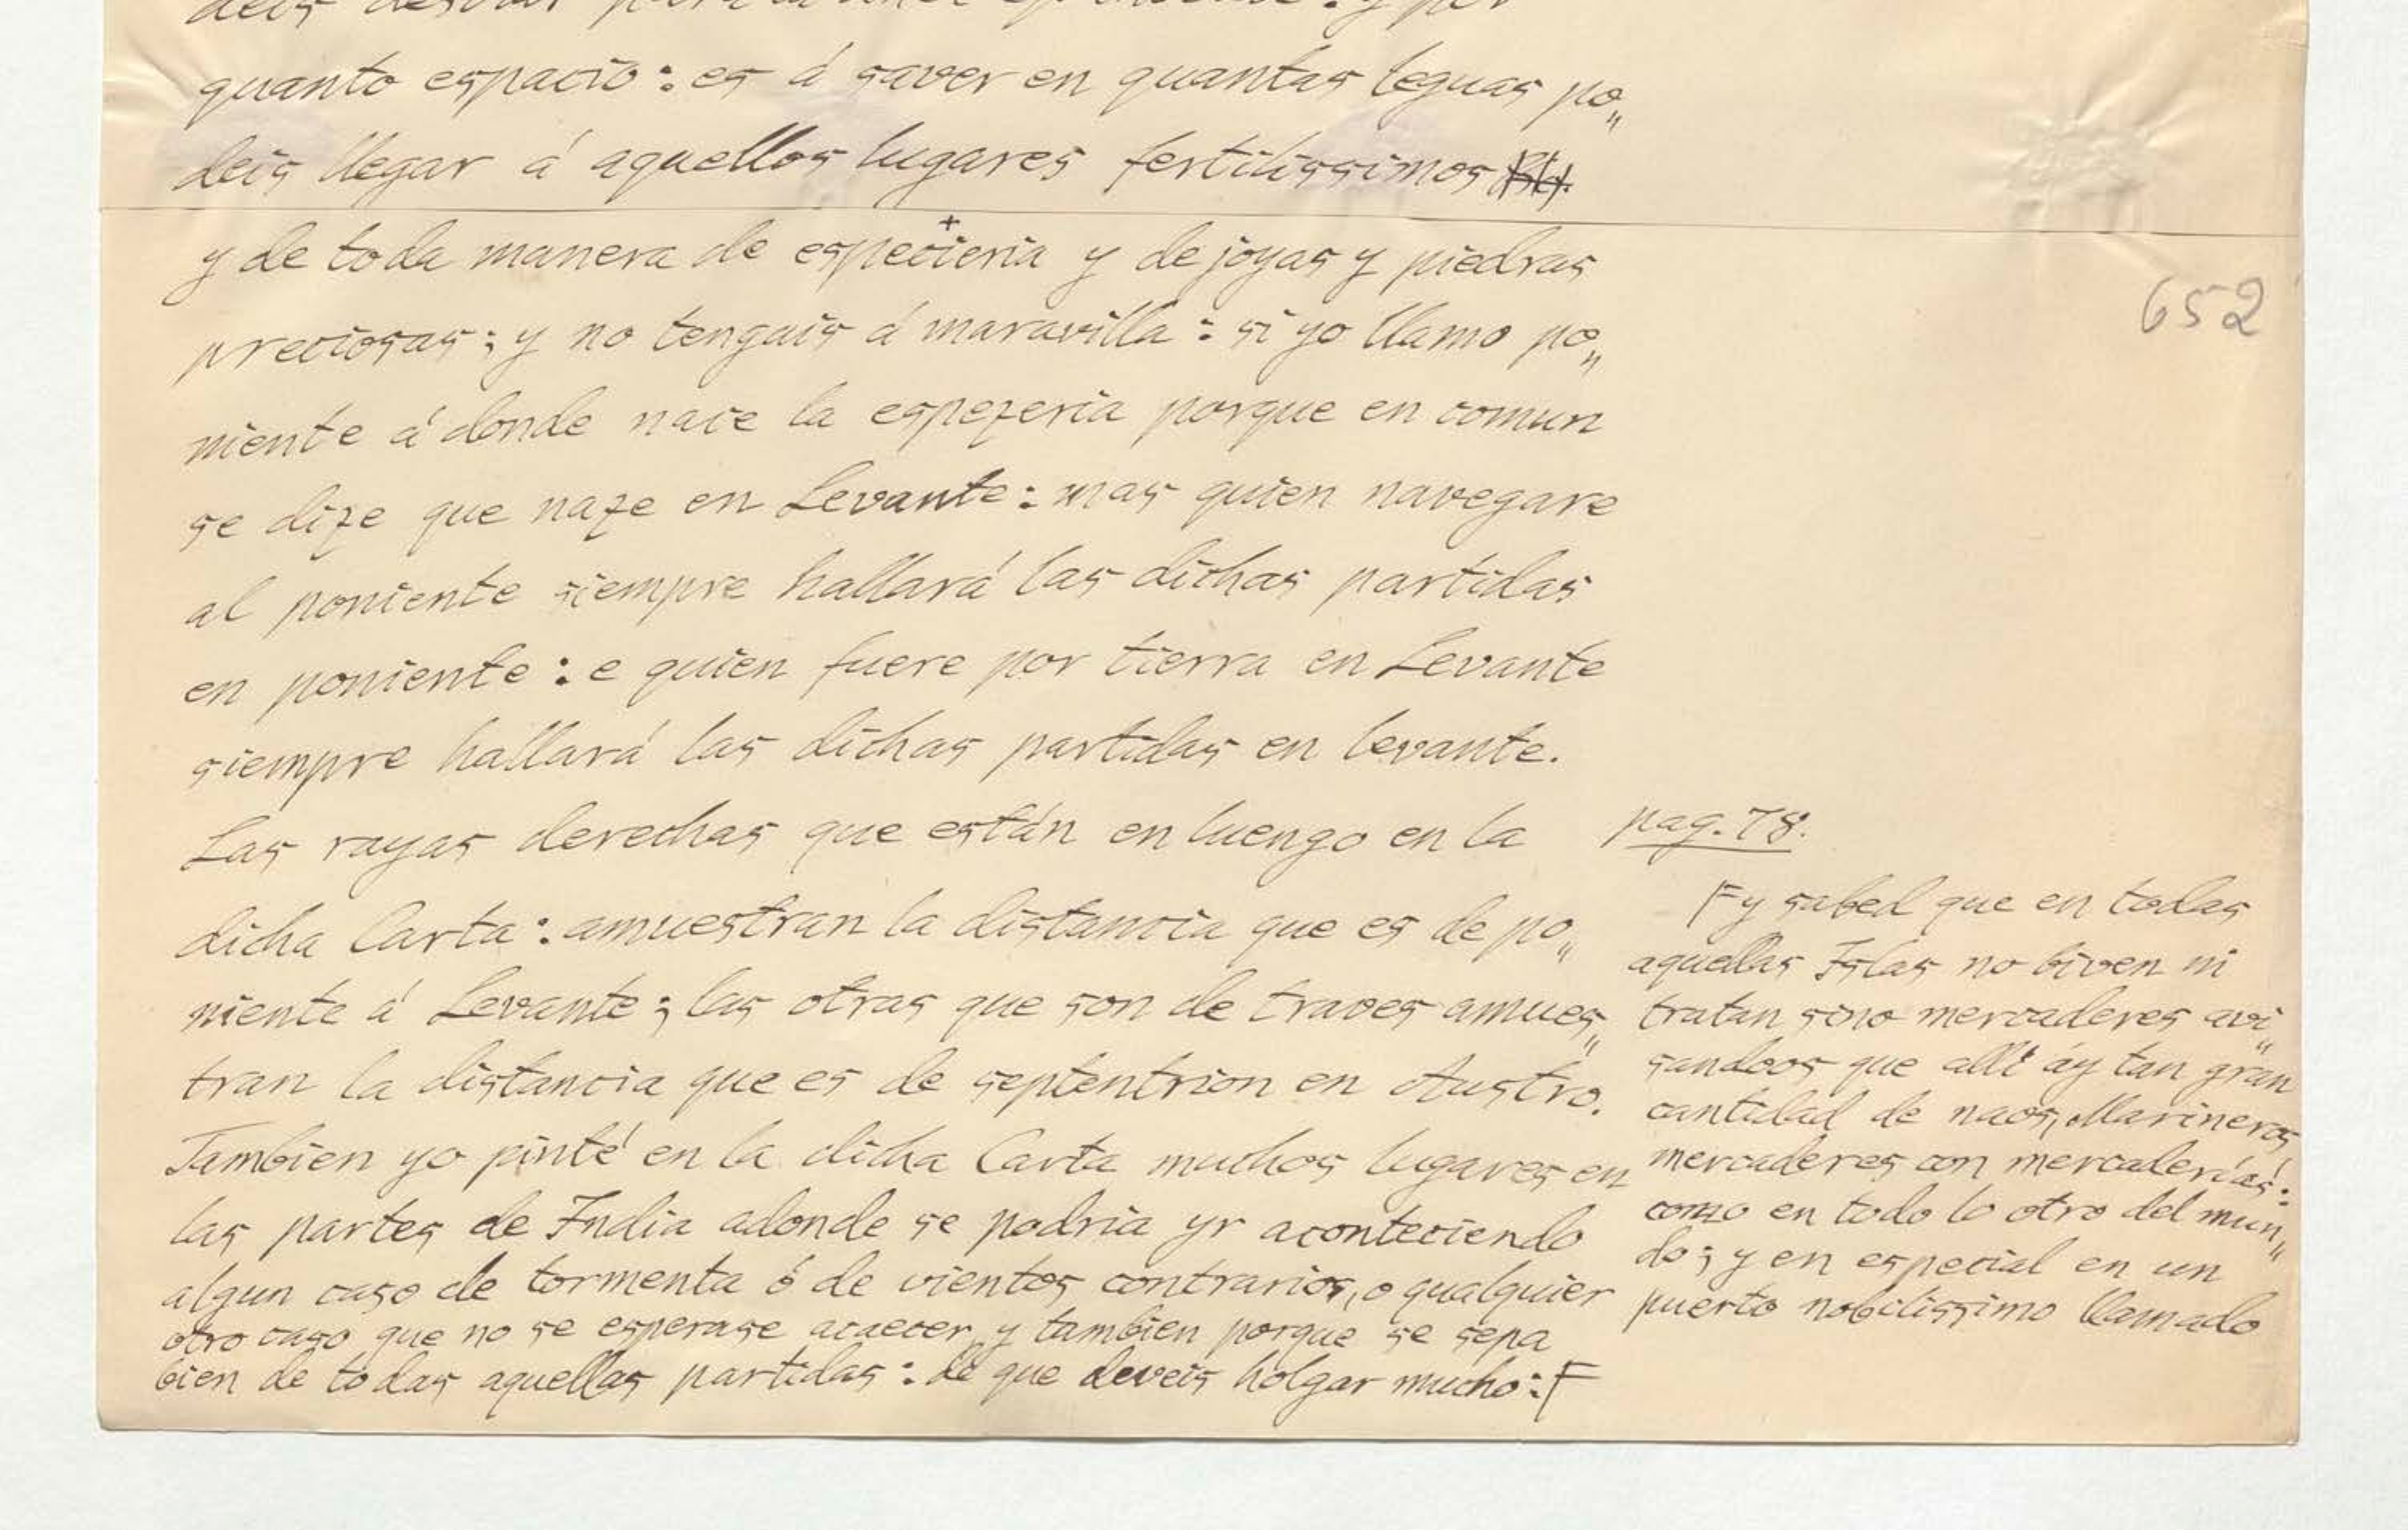 quanto espacio: es á saver en quantas leguas po„
deis llegar á aquellos lugares fertilissimos
y de toda manera de especieria y de joyas y piedras
preciosas; y no tengais á maravilla: si yo llamo po„
niente á donde nace la espezeria porque en comun
se dize que naze en Levante: mas quien navegare
al poniente siempre hallará las dichas partidas
en poniente: e quien fuere por tierra en Levante
siempre hallará las dichas partidas en levante.
Las rayas derechas que están en luengo en la
dicha Carta: amuestran la distancia que es de po„
niente á Levante; las otras que son de traves amues„
tran la distancia que es de septentrion en Austro.
Tambien yo pinté en la dicha Carta muchos lugares en
las partes de India adonde se podria yr aconteciendo
algun caso de tormenta ó de vientos contrarios, o qualquier
otro caso que no se esperase acaecer y tambien porque se sepa
bien de todas aquellas partidas: de que deveis holgar mucho: F
652
pag. 78.
F y sabed que en todas
aquellas Islas no biven ni
tratan sino mercaderes avi„
sandoos que allí áy tan gran
cantidad de naos, Marineros,
mercaderes con mercaderías:
como en todo lo otro del mun„
do; y en especial en un
puerto nobilissimo llamado